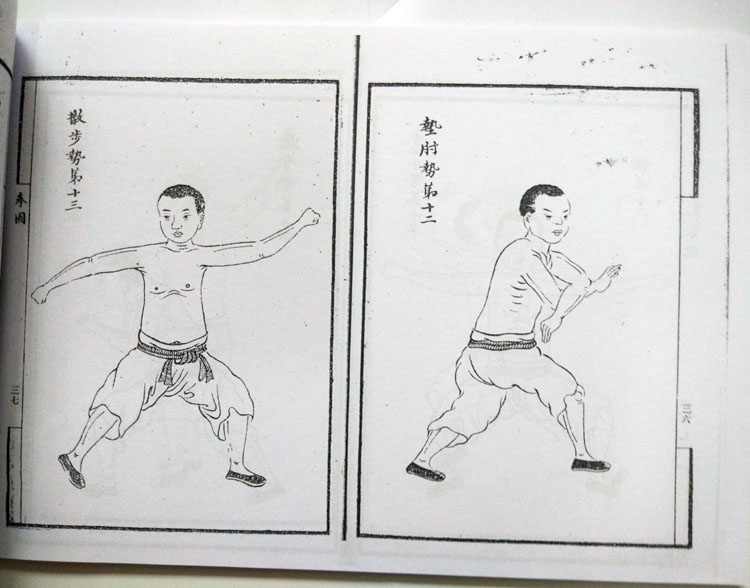 墊肘勢第十二
三六
散步勢第十三
拳圖
三七